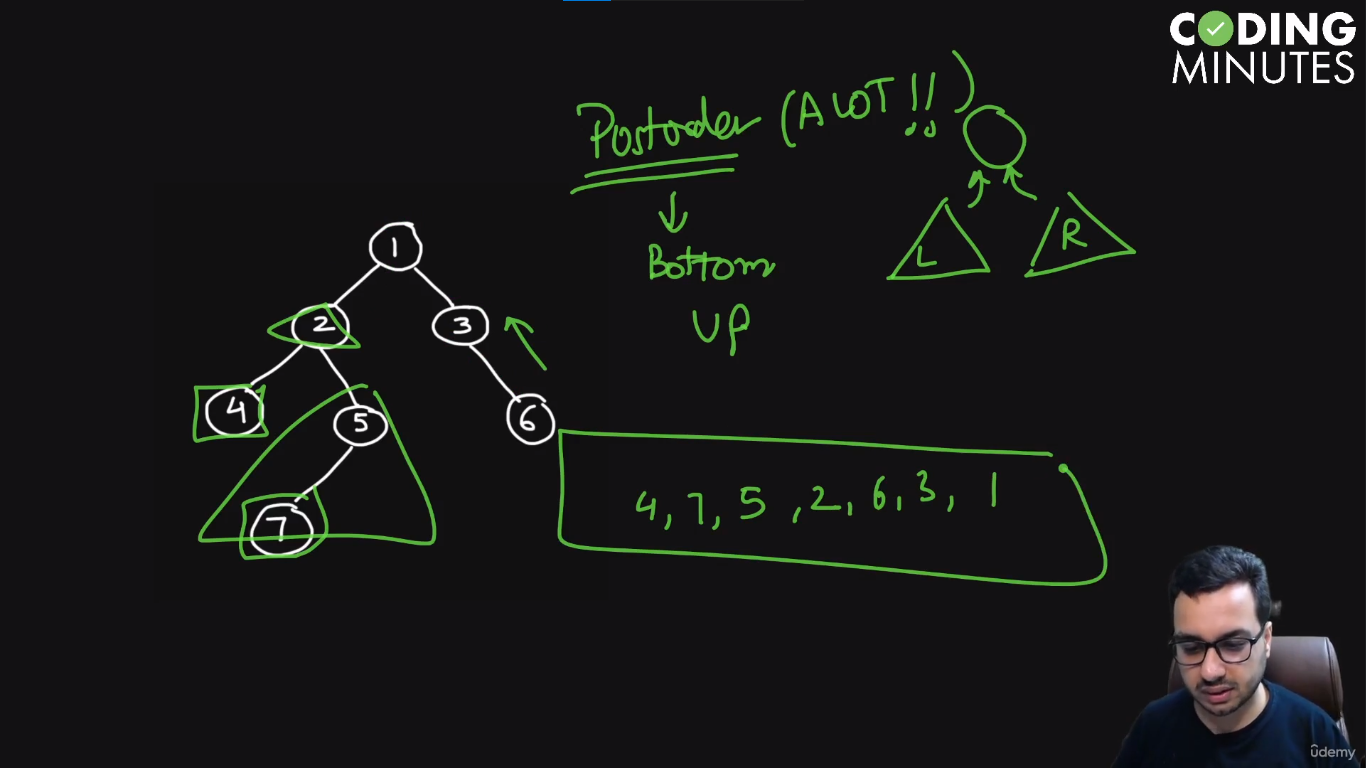 CODING
MINUTES
Postorder (A LOT !!)
↓
Bottom
UP
L
R
1
2
3
4
5
6
7
4, 7, 5 , 2, 6, 3, 1
ûdemy